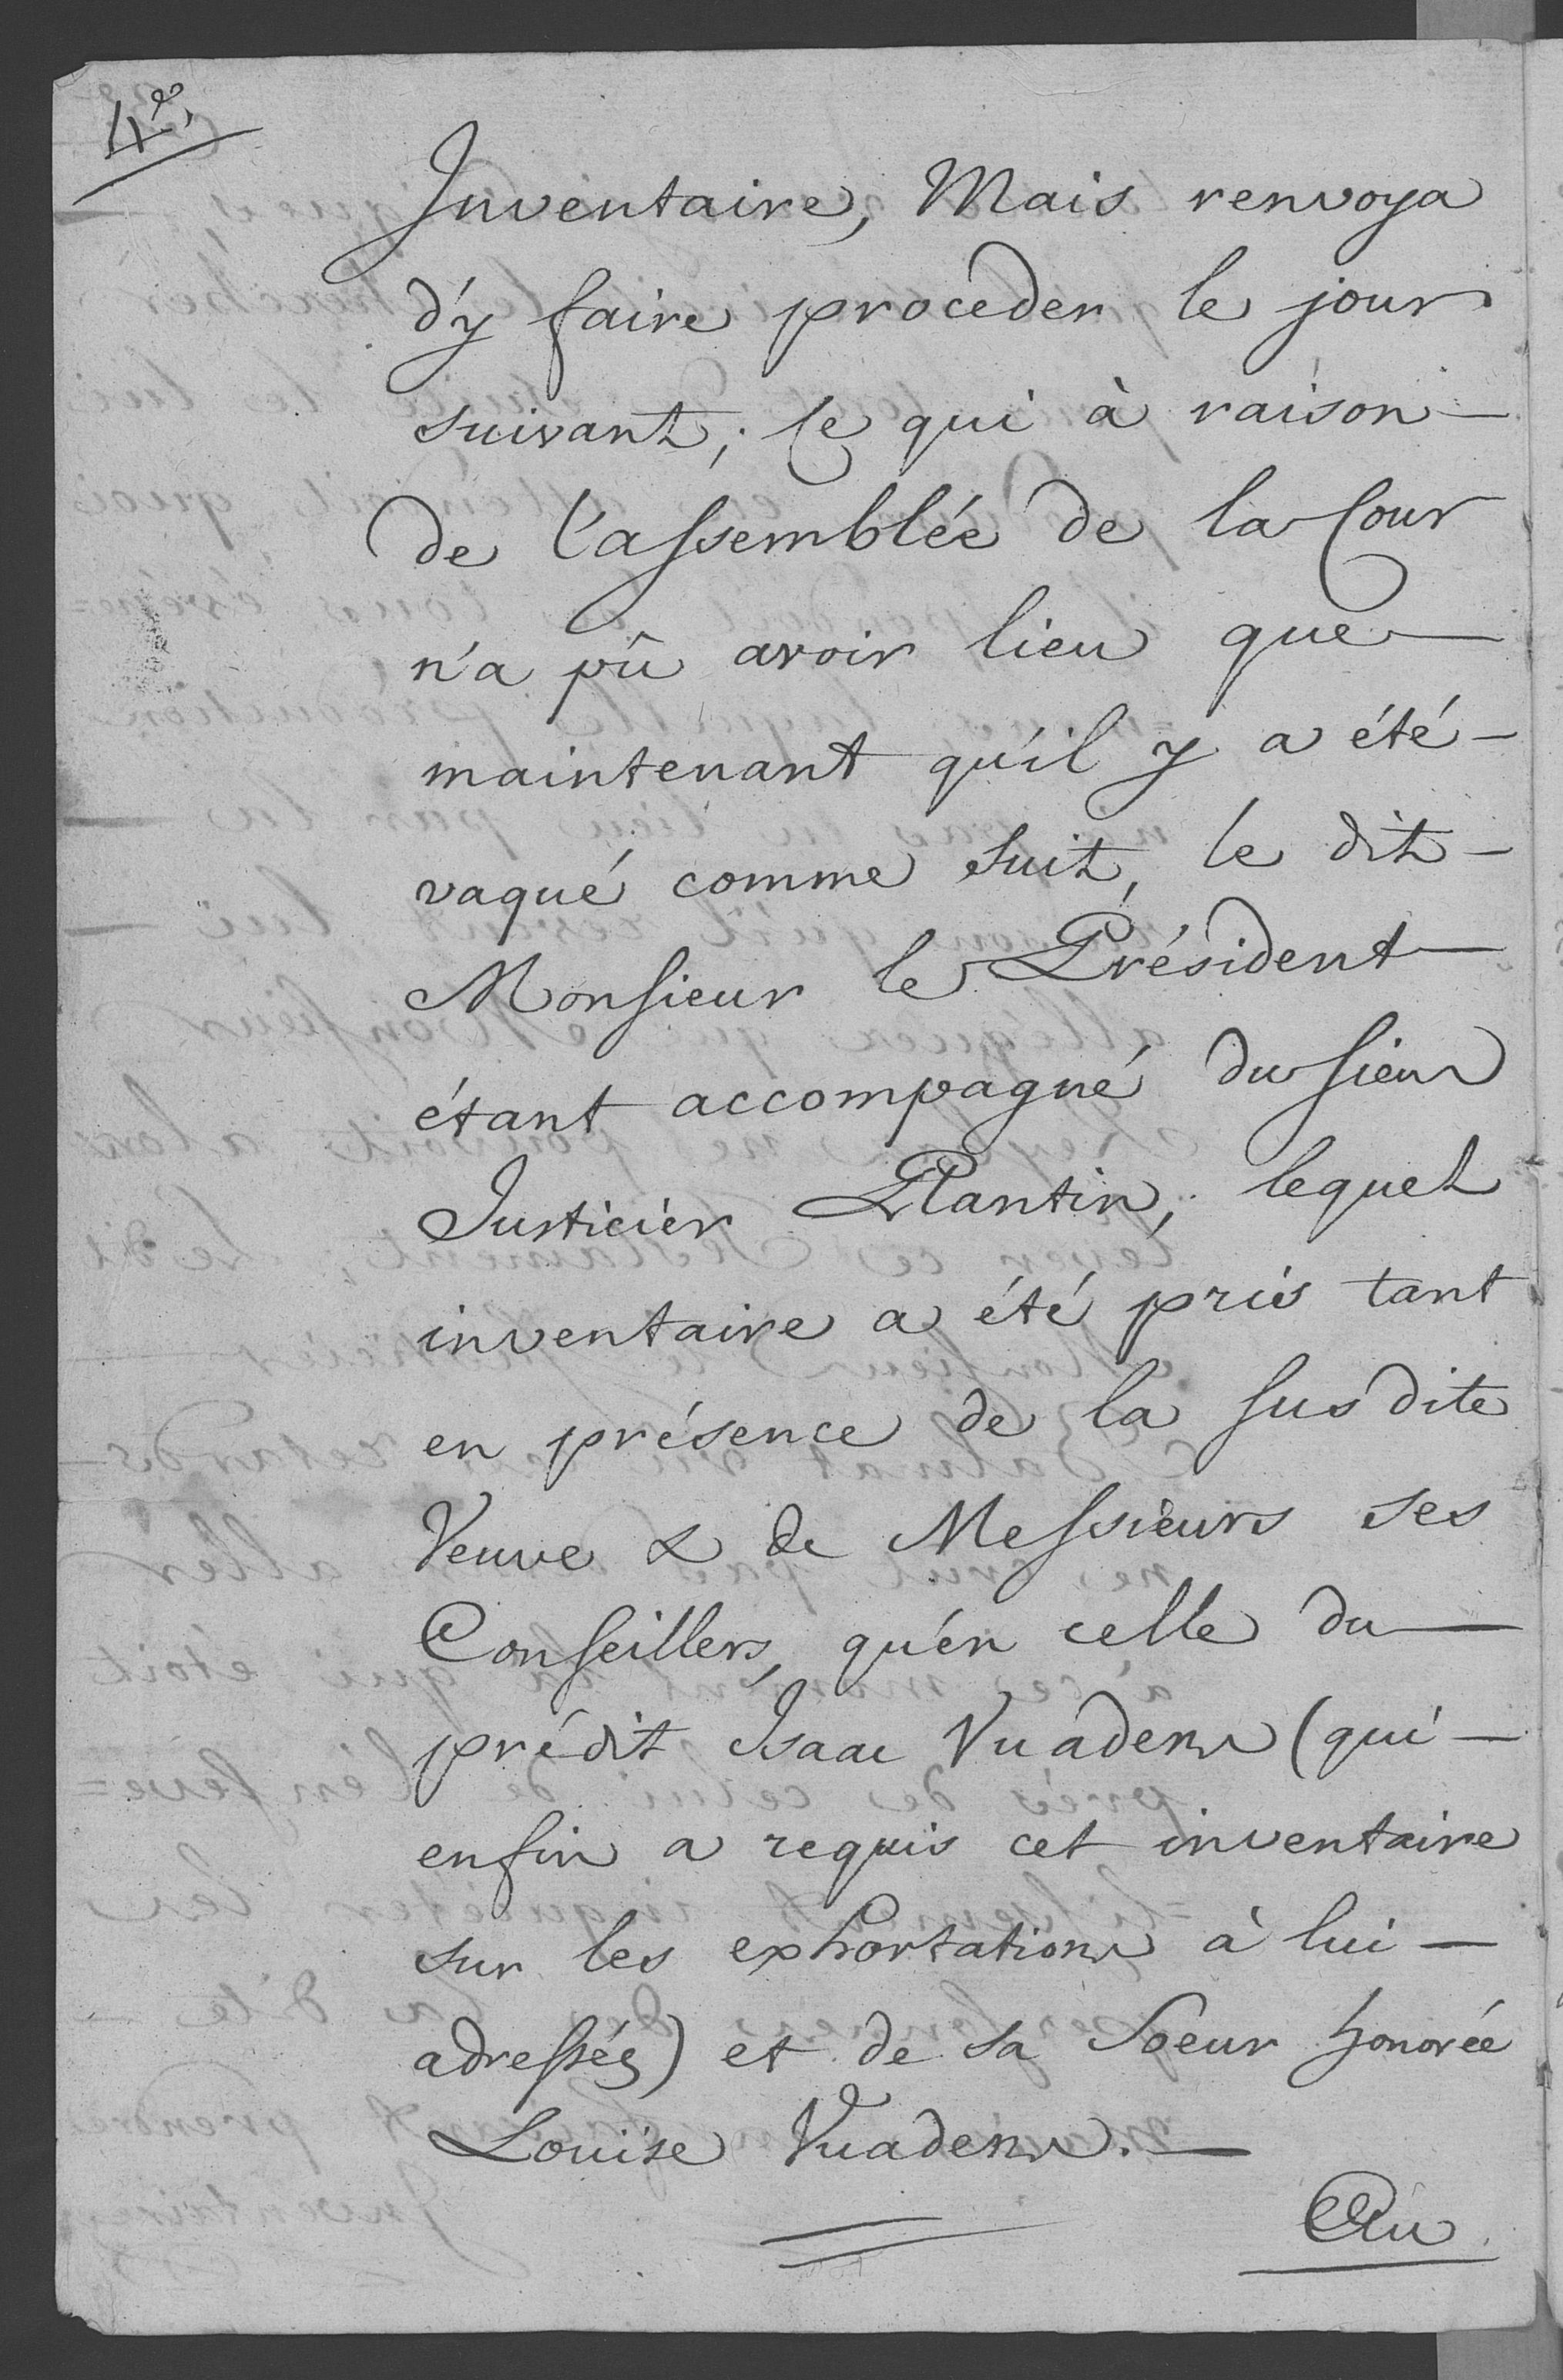 4e.
Inventaire, Mais renvoya
d'y faire proceder le jour
suivant; Ce qui à raison —
de l'assemblée de la Cour
n'a pû avoir lieu que —
maintenant qu'il y a été —
vaqué comme suit, le dit —
Monsieur le Président —
étant accompagné du Sieur
Justicier Plantin; lequel
inventaire a été pris tant
en présence de la susdite
Veuve & de Messieurs ses
Conseillers, qu'en celle du —
prédit Isaac Vuadens (qui —
enfin a requis cet inventaire
sur les exhortations à lui —
adressées) et de sa Soeur honorée
Louise Vuadens. —
Au